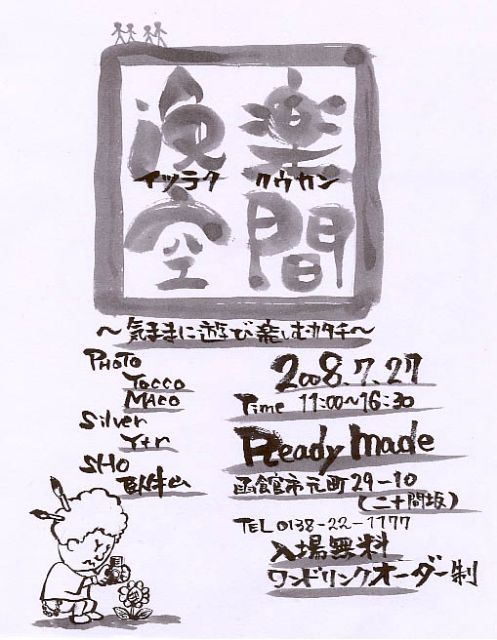 逸楽
イツラク クウカン
空間
～気ままに遊び楽しむカタチ～
PHOTO
YOCCO
MACO
Silver
Y+r
SHO
臥牛山
2008.7.27
Time 11:00～16:30
Ready Made
函館市元町29-10
(二十間坂)
TEL 0138-22-1177
入場無料
ワンドリンクオーダー制